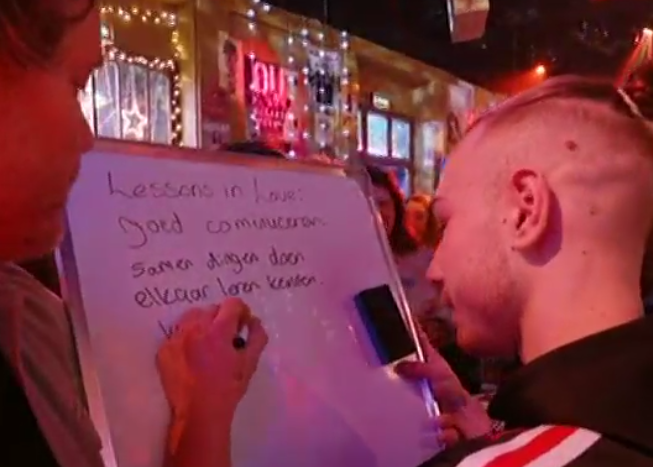 Lessons in Love:
goed cominuceren
Samen dingen doen
elkaar leren kennen.